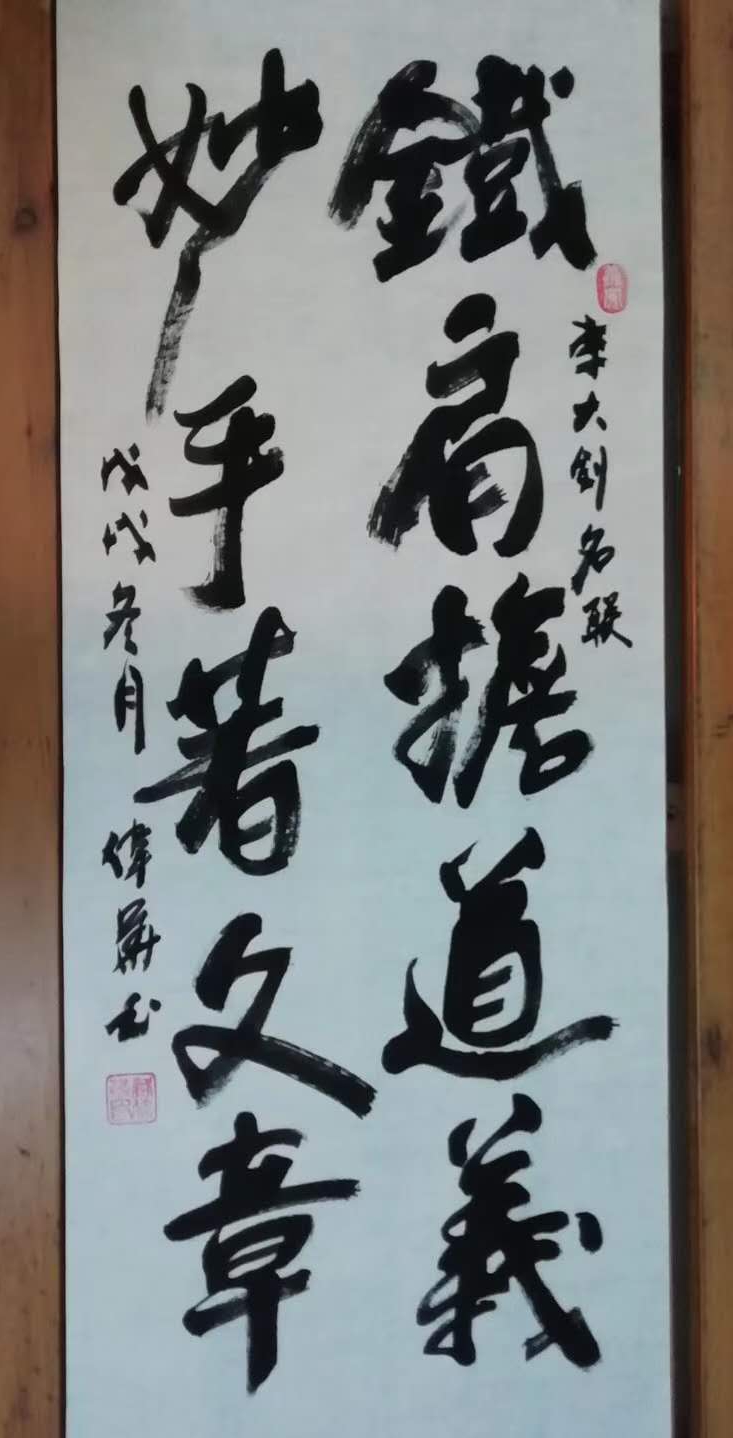 鐵肩擔道義
李大釗名联
妙手著文章
戊戌冬月 偉華书